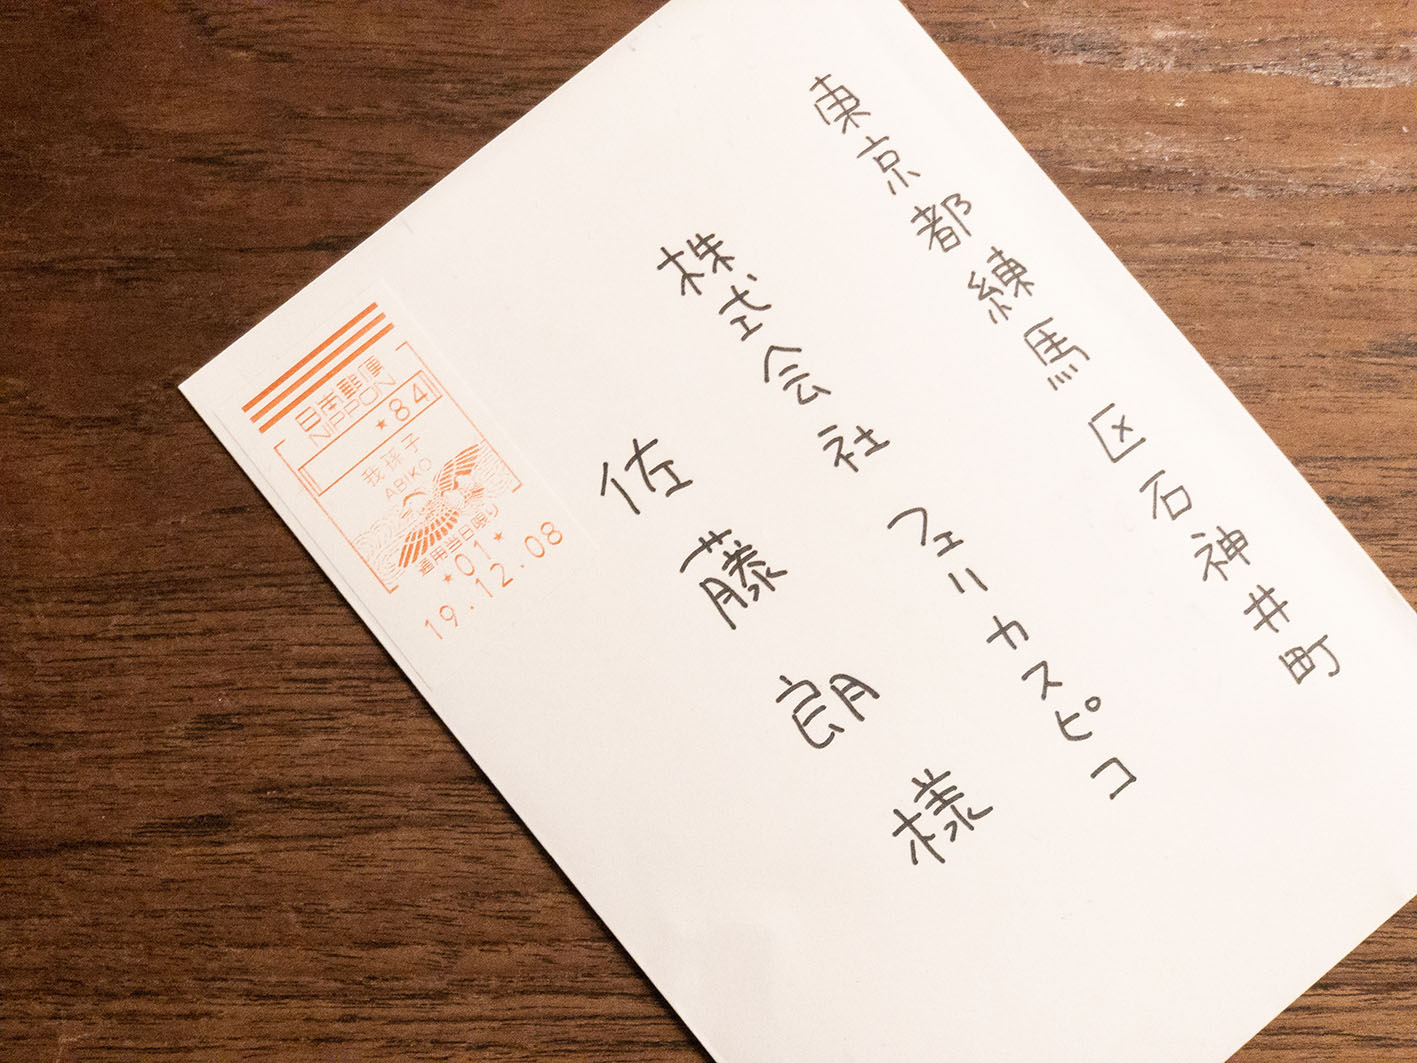 東京都練馬区石神井町
株式会社フェリカスピコ
佐藤朗様
日本郵便
NIPPON
★84
我孫子
ABIKO
通用当日限り
★01★
19.12.08